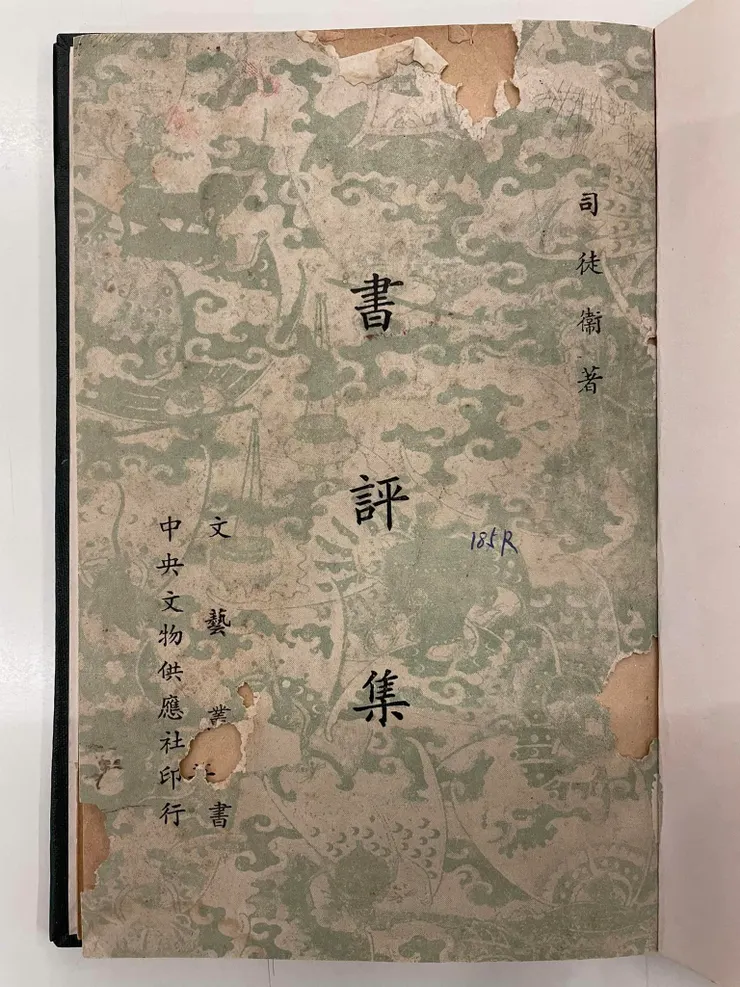 司徒衞著
書評集
185R
文藝叢書
中央文物供應社印行